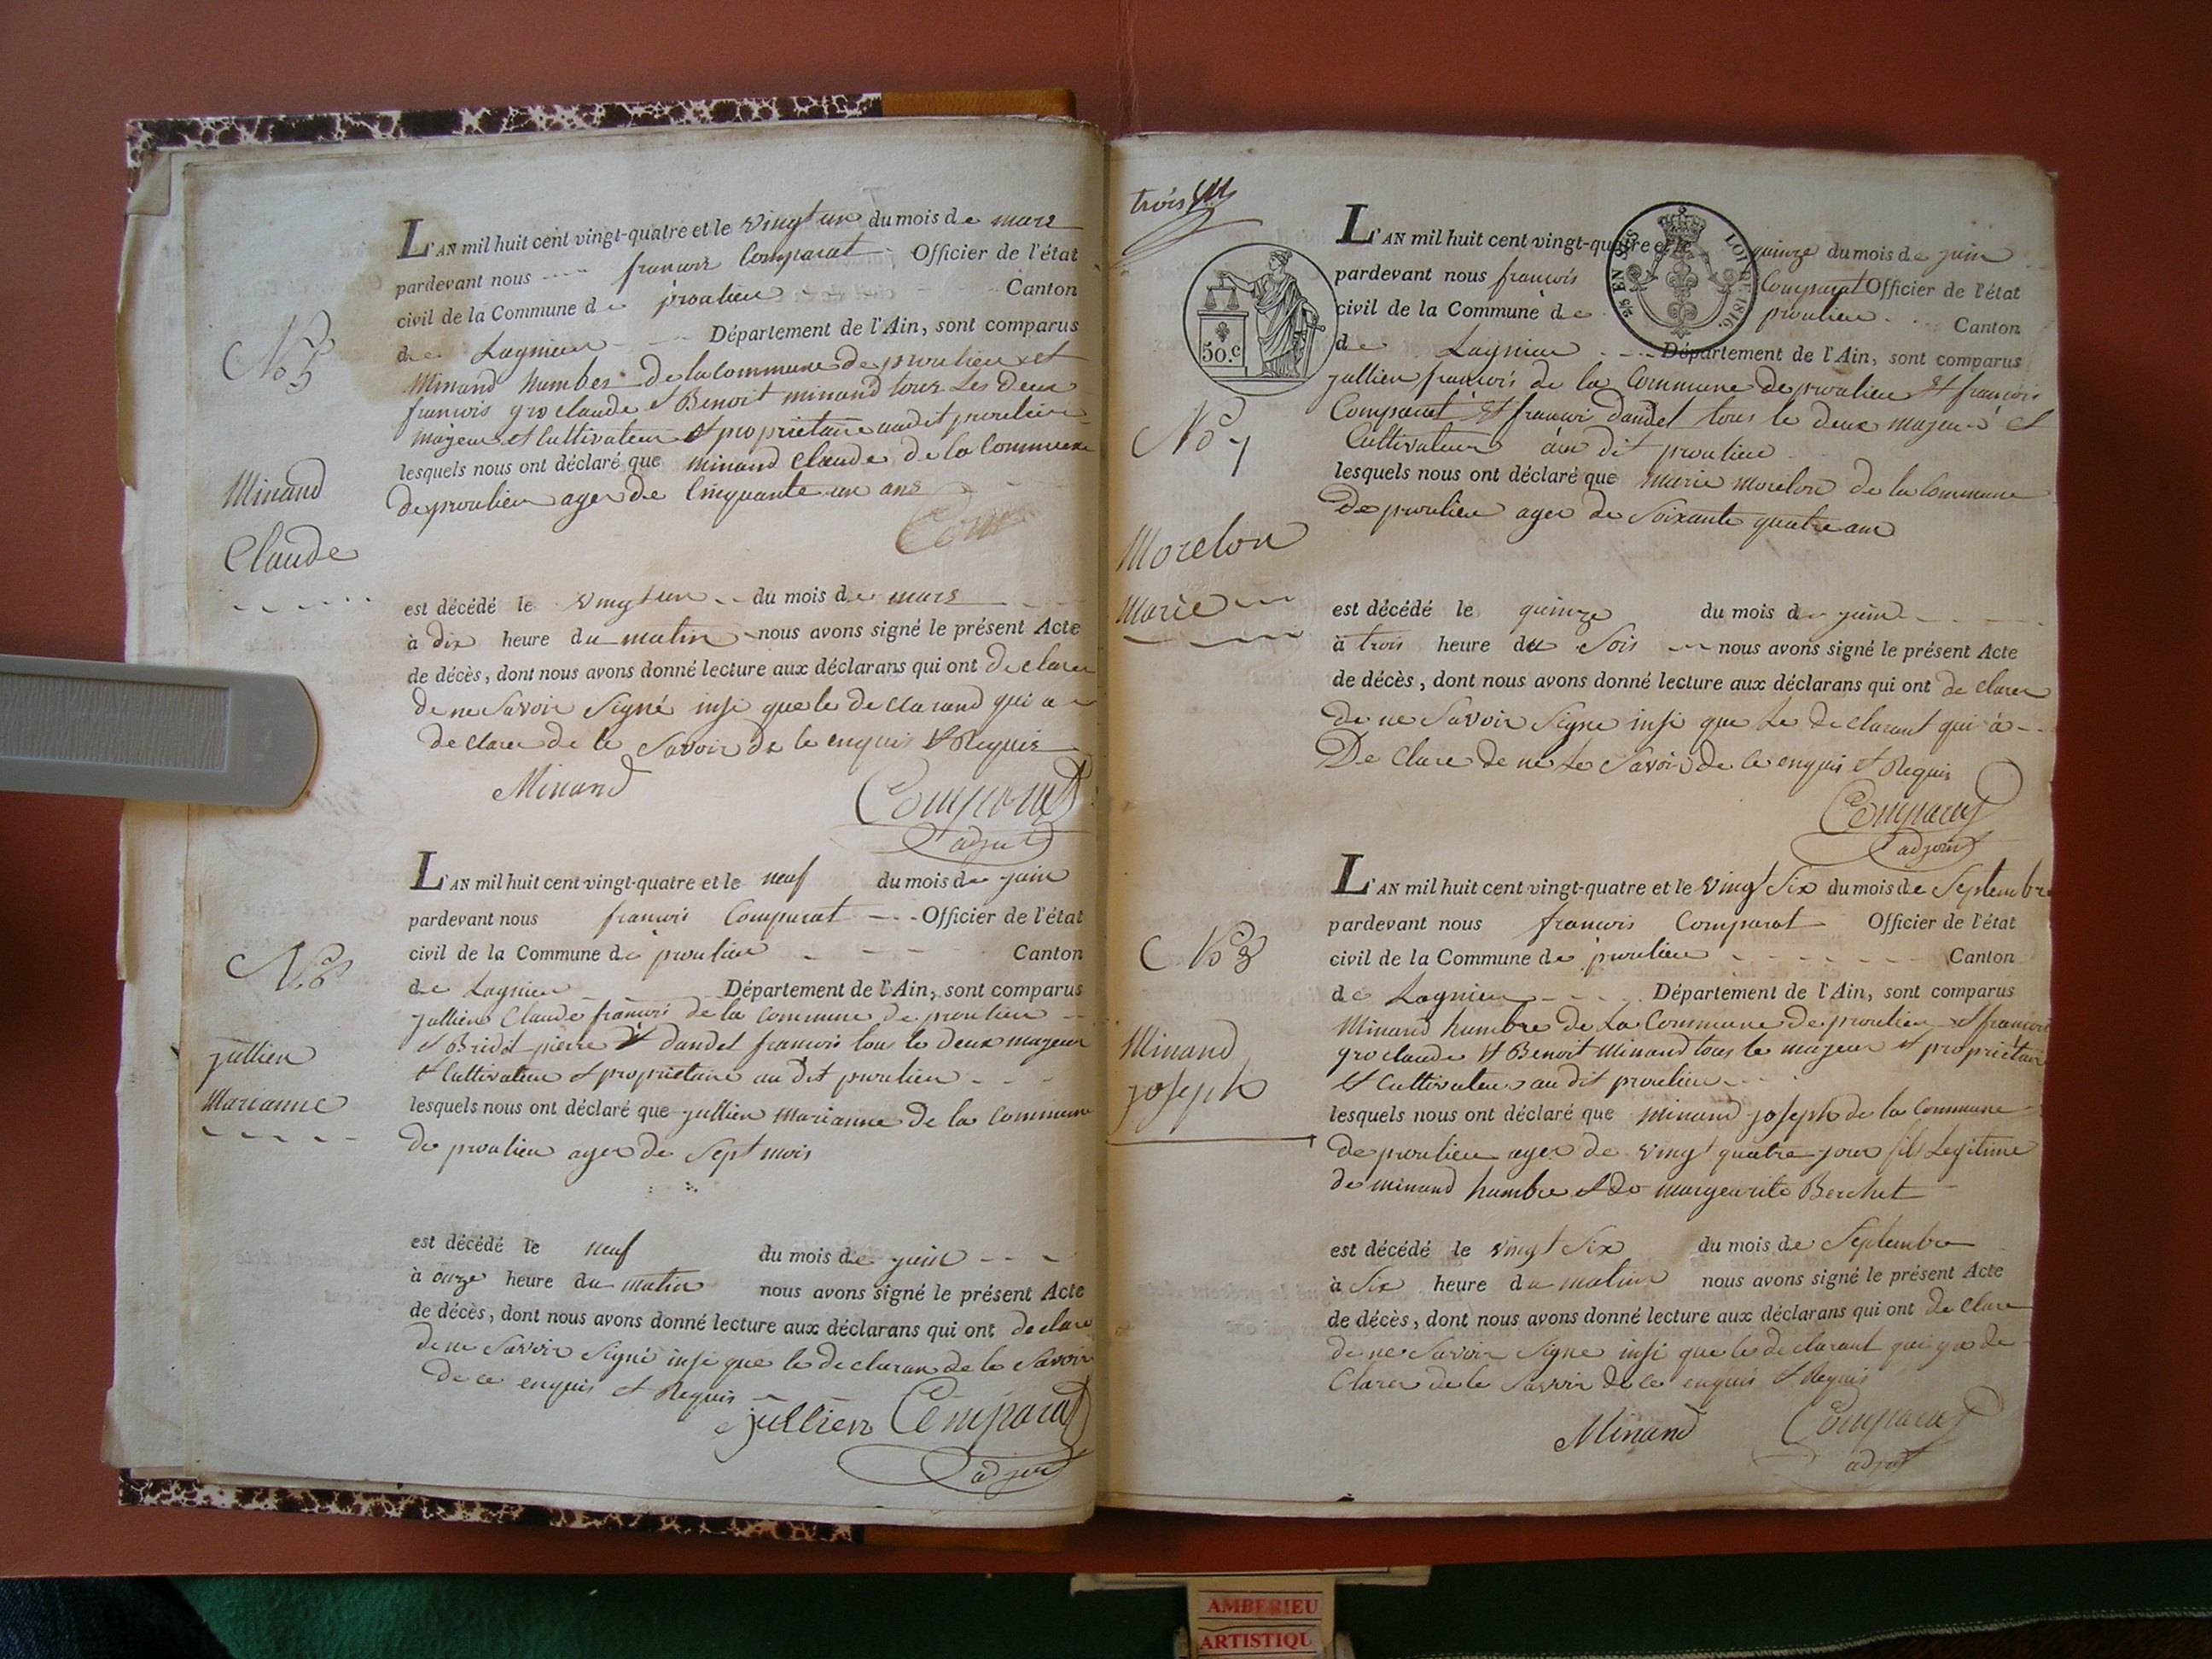 N.o 5
Minand
Claude
L'AN mil huit cent vingt-quatre et le vingt un du mois de mars
pardevant nous francois Comparat Officier de l'état
civil de la Commune de proulieu Canton
de Lagnieu Département de l'Ain, sont comparus
Minand humber de la commune de proulieu et
francois gro claude et Benoit minand tous les deux
majeur et Cultivateur et proprietaire audit proulieu
lesquels nous ont déclaré que minand Claude de la Commune
de proulieu ager de Cinquante un ans
est décédé le vingt un du mois de mars
à dix heure du matin nous avons signé le présent Acte
de décès, dont nous avons donné lecture aux déclarans qui ont de clarer
de ne Savoir Signé insi que le de clarand qui a
de clarer de le Savoir de le enquis et Requis
Minand Comparat
adjoit
N.o 6
jullien
Marianne
L'AN mil huit cent vingt-quatre et le neuf du mois de juin
pardevant nous francois Comparat Officier de l'état
civil de la Commune de proulieu Canton
de Lagnieu Département de l'Ain, sont comparus
jullien Claude francois de la commune de proulieu
et Bridot pierre et dandel francois tous le deux mageur
et Cultivateur et proprietaire au dit proulieu
lesquels nous ont déclaré que jullien marianne de la Commune
de proulieu ager de Sept mois
est décédé le neuf du mois de juin
à onze heure du matin nous avons signé le présent Acte
de décès, dont nous avons donné lecture aux déclarans qui ont de clare
de ne Savoir Signé insi que le de claran de le Savoir
de ce enquis et Requis
jullien Comparat
adjoit
trois
50.c
EN SUS
LOI DE 1816.
N.o 7
Morelon
Marie
L'AN mil huit cent vingt-quatre et le quinze du mois de juin
pardevant nous francois Comparat Officier de l'état
civil de la Commune de proulieu Canton
de Lagnieu Département de l'Ain, sont comparus
jullien francois de la Commune de proulieu et francois
Comparat et francoi dandel tous le deux majeur et
Cultivateur au dit proulieu
lesquels nous ont déclaré que marie morelon de la Commune
De proulieu ager de Soixante quatre ans
est décédé le quinze du mois de juin
à trois heure du Soir nous avons signé le présent Acte
de décès, dont nous avons donné lecture aux déclarans qui ont de clarer
de ne Savoir Signe insi que Le de clarant qui à
De Clare de ne Le Savoir de ce enquis et Requis
Comparat
adjoint
N.o 8
Minand
joseph
L'AN mil huit cent vingt-quatre et le vingt Six du mois de Septembre
pardevant nous francois Comparat Officier de l'état
civil de la Commune de proulieu Canton
de Lagnieu Département de l'Ain, sont comparus
Minand humbre de La Commune de proulieu et francois
gro claude et Benoit Minand tous le majeur et proprietair
et Cultivateur au dit proulieu
lesquels nous ont déclaré que minand joseph de la Commune
de proulieu ager de vingt quatre jour fils Legitime
de minand humbre et de margeurite Berchet
est décédé le vingt Six du mois de Septembre
à Six heure du matin nous avons signé le présent Acte
de décès, dont nous avons donné lecture aux déclarans qui ont de clare
de ne Savoir Signe insi que le de clarant qui ya de
Clarer de le Savoir de ce enquis et Requis
Minand Comparat
adjoit
AMBERIEU
ARTISTIQU